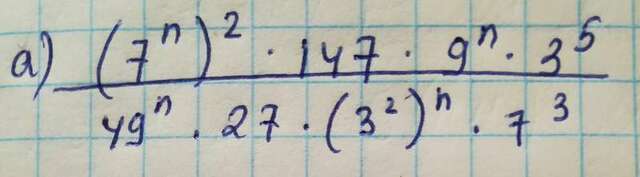 а) (7ⁿ)² · 147 · 9ⁿ · 3⁵
49ⁿ · 27 · (3²)ⁿ · 7³